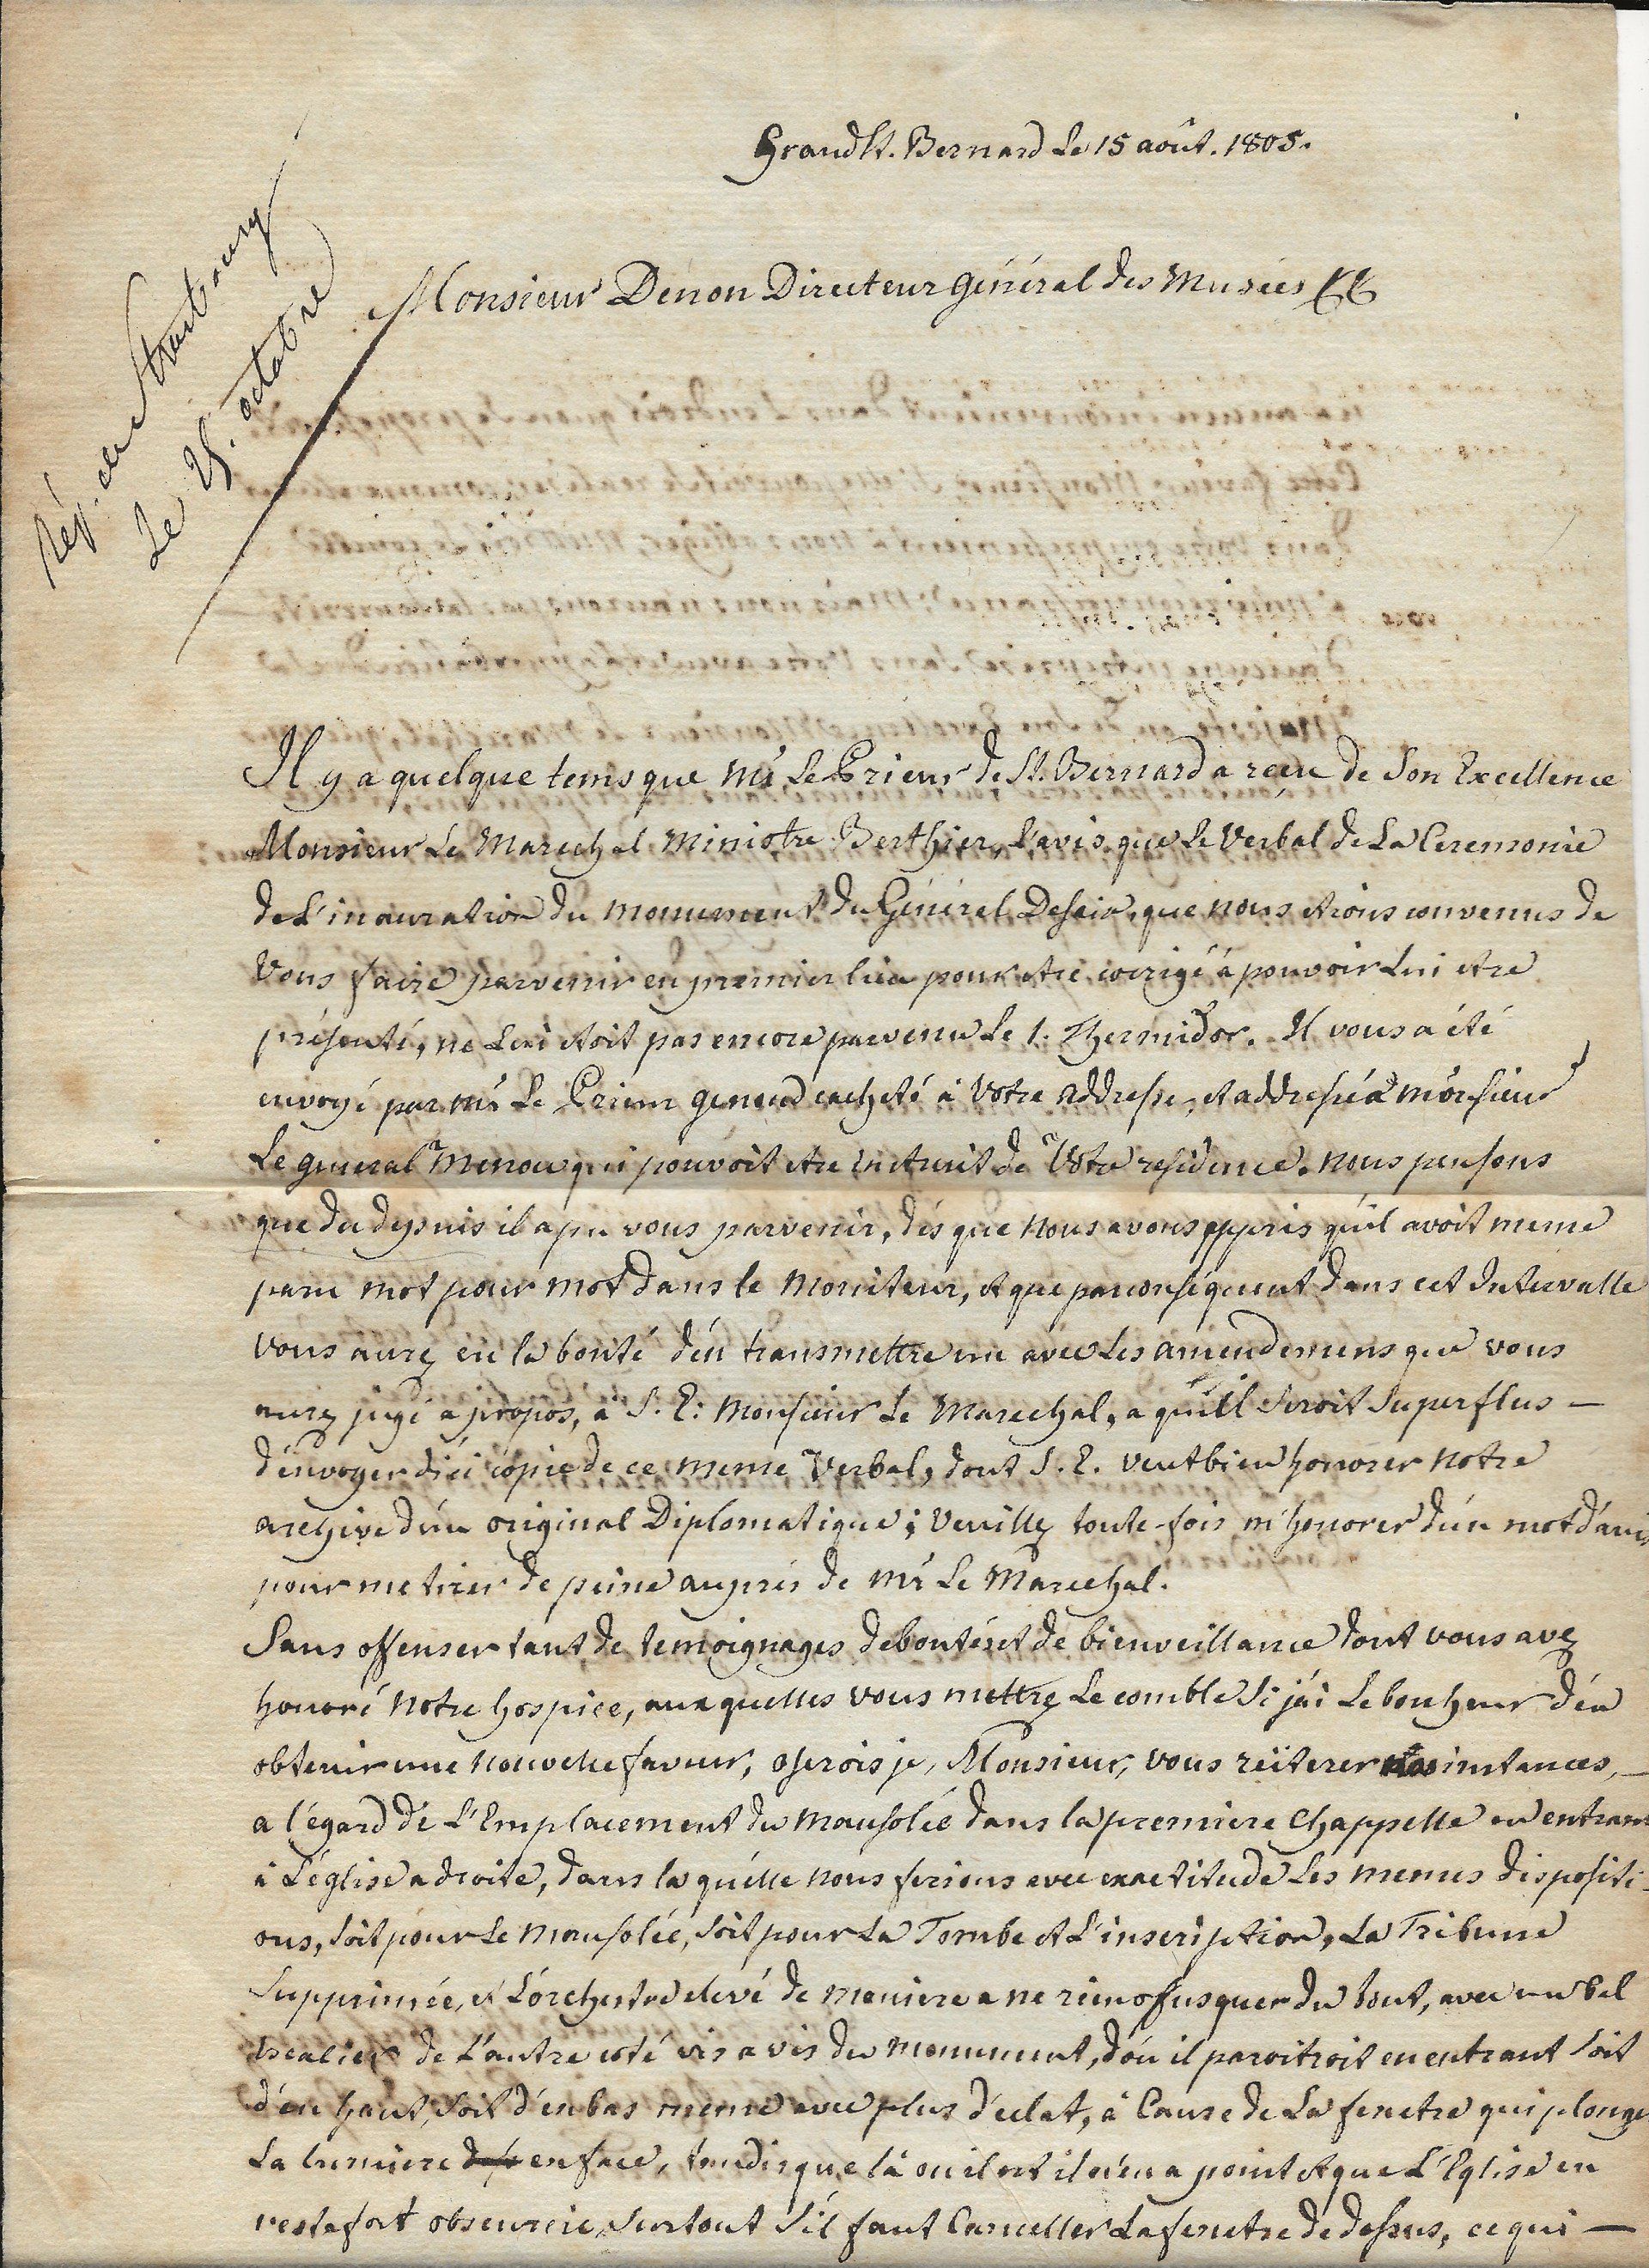 Grand St. Bernard Le 15 août. 1805.
Rép. de Strasbourg
Le 25. octobre
Monsieur Denon Directeur général des Musées &&
Il y a quelque tems que Mr. Le Prieur de St. Bernard a reçu de Son Excellence
Monsieur Le Marechal Ministre Berthier, l'avis que Le Verbal de La Ceremonie
de L'inauration du monument du Général Desaix, que nous etions convenus de
Vous faire parvenir en premier lieu pour etre corrigé à pouvoir Lui etre
présenté, ne Lui etoit pas encore parvenu Le 1. Thermidor. Il vous a été
envoyé par Mr. Le Prieur general cacheté à Votre addresse, et addressé à monsieur
Le general Menou qui pouvoit etre instruit de Votre residence. nous pensons
que du depuis il a pu vous parvenir, dès que nous avons appris qu'il avoit meme
paru mot pour mot dans le Moniteur, et que par conséquent dans cet Intervalle
vous aurez eu la bonté d'en transmettre un avec Les amendemens que vous
aurez jugé a propos, à S. E: Monsieur Le Marechal, a qui il seroit superflus —
d'envoyer d'ici copie de ce meme Verbal, dont S. E. veut bien honorer notre
archive d'un original Diplomatique; Veuillez toute-fois m'honorer d'un mot d'avis
pour me tirer de peine auprès de Mr. Le Marechal.
Sans offenser tant de temoignages de bontés et de bienveillance dont vous avez
honoré notre hospice, auxquelles vous mettrez Le comble si j'ai Le bonheur d'en
obtenir une nouvelle faveur, oserois je, Monsieur, vous réiterer nos instances, —
a l'égard de L'Emplacement du mausolée dans la premiere Chappelle en entrant
à L'église a droite, dans la quelle nous ferions avec exactitude Les memes dispositi-
ons, soit pour Le mausolée, soit pour La Tombe et L'inscription, La Tribune
Supprimée, et L'orchestre elevé de maniere a ne rien ofusquer du tout, avec un bel
escalier de L'autre coté vis a vis du monument, d'où il paroitroit en entrant soit
d'en haut, soit d'en bas meme avec plus d'eclat, à Cause de La fenetre qui plonge
La lumiere en face, tandis que là où il est il n'en a point et que L'Eglise en
reste fort obscurcie, surtout s'il faut Canceller La fenetre de dessus, ce qui —